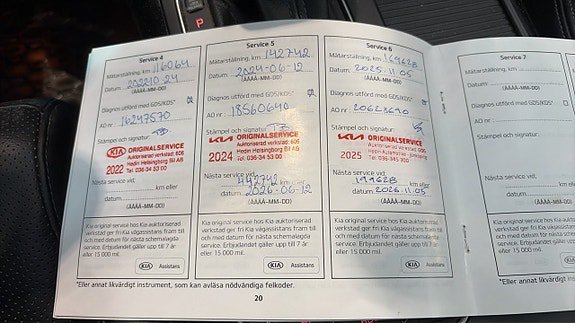 P
Service 4
Mätarställning, km 116064
Datum 20221024
(ÅÅÅÅ-MM-DD)
Diagnos utförd med GDS/KDS*
AO nr 16247570
Stämpel och signatur
KIA ORIGINALSERVICE
Auktoriserad verkstad: 605
Hedin Helsingborg Bil AB
2022 Tel. 036-34 53 00
Nästa service vid,
km eller
datum
(ÅÅÅÅ-MM-DD)
Kia original service hos Kia auktoriserad
verkstad ger Kia vägassistans fram till
och med datum för nästa schemalagda
service. Erbjudandet gäller upp till 7 år
eller 15 000 mil.
KIA Assistans
Service 5
Mätarställning, km 142742
Datum 2024-06-12
(ÅÅÅÅ-MM-DD)
Diagnos utförd med GDS/KDS*
AO nr 18560640
Stämpel och signatur
KIA ORIGINALSERVICE
Auktoriserad verkstad: 605
Hedin Helsingborg Bil AB
2024 Tel. 036-34 53 00
Nästa service vid,
442742 km eller
datum 2026-06-12
(ÅÅÅÅ-MM-DD)
Kia original service hos Kia auktoriserad
verkstad ger Kia vägassistans fram till
och med datum för nästa schemalagda
service. Erbjudandet gäller upp till 7 år
eller 15 000 mil.
KIA Assistans
Service 6
Mätarställning, km 199628
Datum 2025.11.05
(ÅÅÅÅ-MM-DD)
Diagnos utförd med GDS/KDS*
AO nr 20623690
Stämpel och signatur
KIA ORIGINALSERVICE
Auktoriserad verkstad: 605
Hedin Automotive
2025 Tel. 036-345 300
Nästa service vid,
199628 km eller
datum 2026.11.05
(ÅÅÅÅ-MM-DD)
Kia original service hos Kia auktoriserad
verkstad ger Kia vägassistans fram till
och med datum för nästa schemalagda
service. Erbjudandet gäller upp till 7 år
eller 15 000 mil.
KIA Assistans
*Eller annat likvärdigt instrument, som kan avläsa nödvändiga felkoder.
20
Service 7
Mätarställning, km
Datum
(ÅÅÅÅ-MM-DD)
Diagnos utförd med GDS/KDS*
AO nr
Stämpel och signatur
Nästa service vid,
datum
(ÅÅÅÅ-MM-DD)
Kia original service hos Kia
verkstad ger Kia vägassistans
och med datum för nästa
service. Erbjudandet gäller
eller 15 000 mil.
*Eller annat likvärdigt